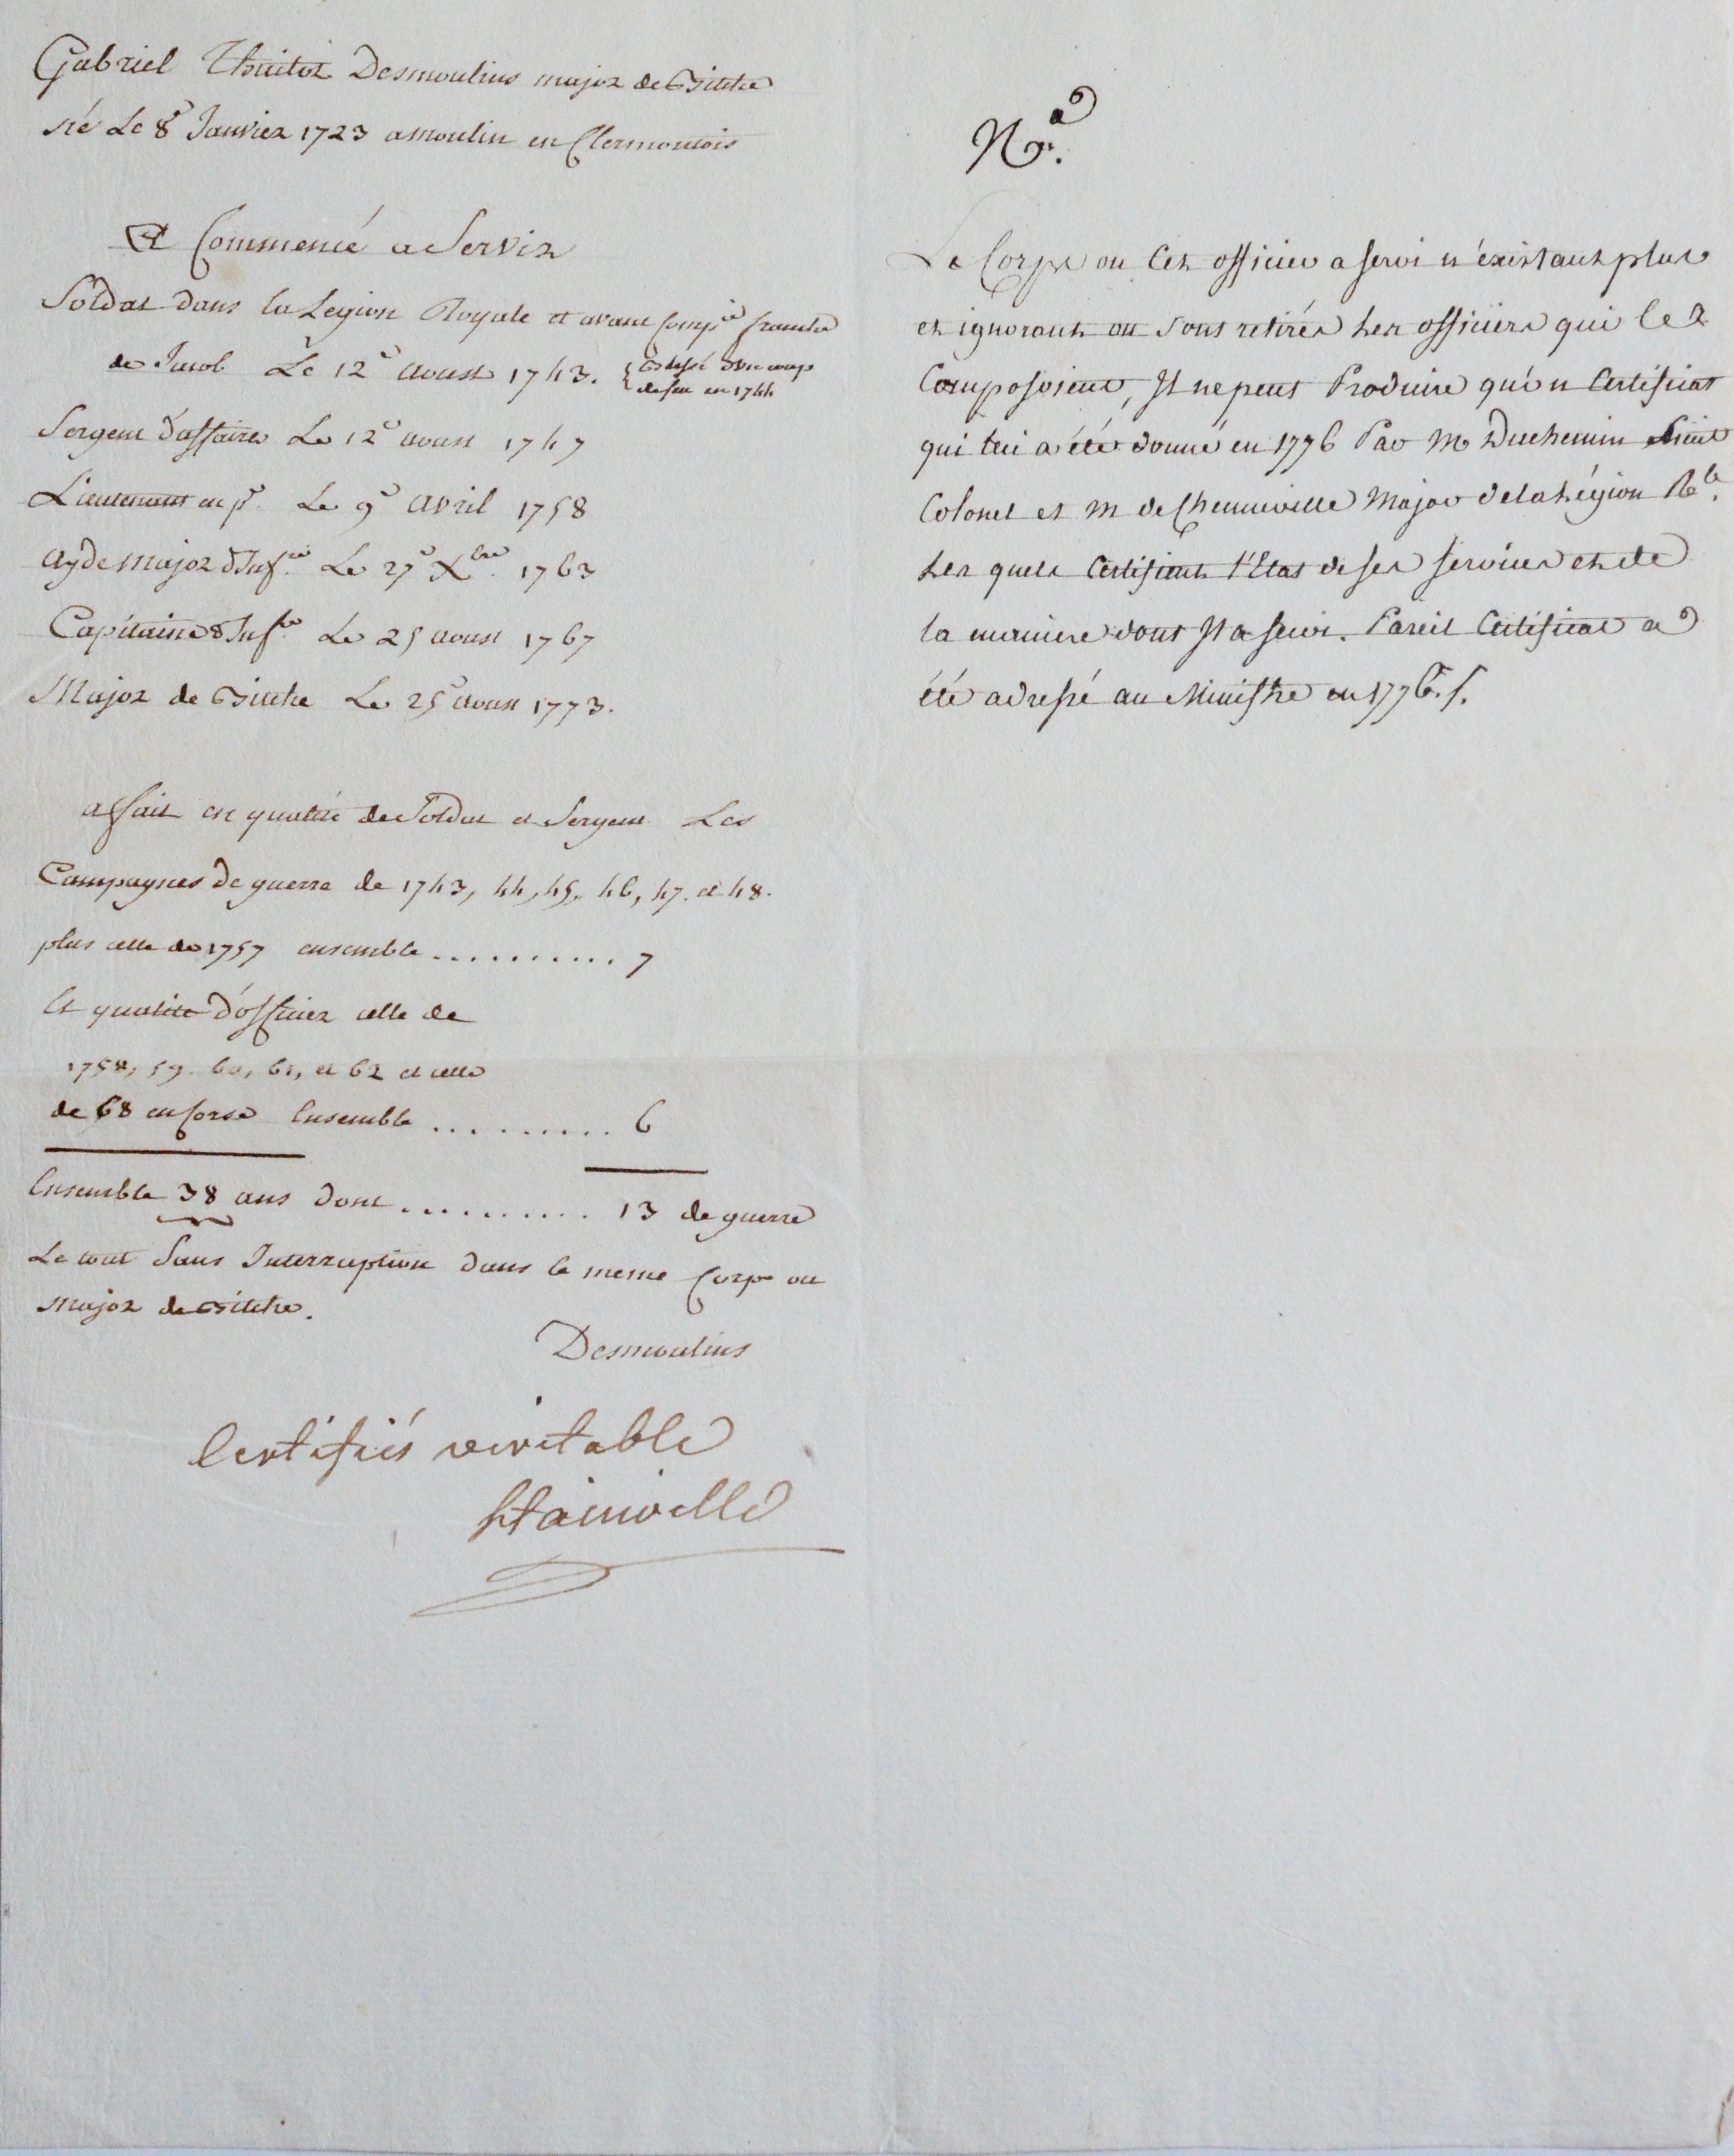 Gabriel Thuitor Desmoulins major de Bitche
né Le 8e Janvier 1723 a moulin en Clermontois
A Commencé a Servir
Soldat dans la Legion Royale et avant Compie franche
de Jacob Le 12e Aoust 1743. { Blessé d'un coup
de feu en 1744
Sergent d'affaires Le 12e aoust 1747
Lieutenant en pr. Le 9e Avril 1758
Ayde major d'Infrie Le 27e Xbre 1763
Capitaine d'Infrie Le 25 aoust 1767
Major de Bitche Le 25e aoust 1773.
a fait en qualité de Soldat et Sergent Les
Campagnes de guerre de 1743, 44, 45, 46, 47. et 48.
plus celle de 1757 ensemble .......... 7
Et qualité d'officier celle de
1758, 59. 60, 61, et 62 et celle
de 68 en Corse Ensemble ......... 6
Ensemble 38 ans dont .......... 13 de guerre
Le tout Sans Interruption dans le meme Corps ou
major de Bitche.
Desmoulins
Certifiés veritable
Stainville
Na.
Le Corps ou Cet officier a servi n'éxistant plus
et ignorant ou sont retirés Les officiers qui le
Composoient, Il ne peut Produire qu'un Certificat
qui lui a été donné en 1776 Par Mr Duchemin Lieut
Colonel et M de Chenneville Major de la Légion Rle.
Les quels Certifient l'Etat de ses services et de
la maniere dont Il a servi. Pareil Certificat a
été adressé au Ministre en 1776.